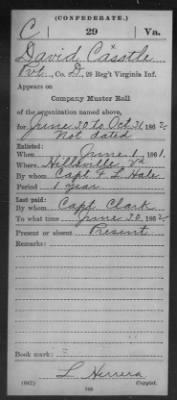 (CONFEDERATE.)
C 29 Va.
David Casstle
Pvt., Co. D, 29 Reg't Virginia Inf.
Appears on
Company Muster Roll
of the organization named above,
for June 30 to Oct 31, 1862
Not dated
Enlisted:
When June 1, 1861.
Where Hillsville, Va
By whom Capt F L Hale
Period 1 year
Last paid:
By whom Capt Clark
To what time June 30, 1862
Present or absent Present
Remarks:
Book mark:
L. Herrera
(642) Copyist.